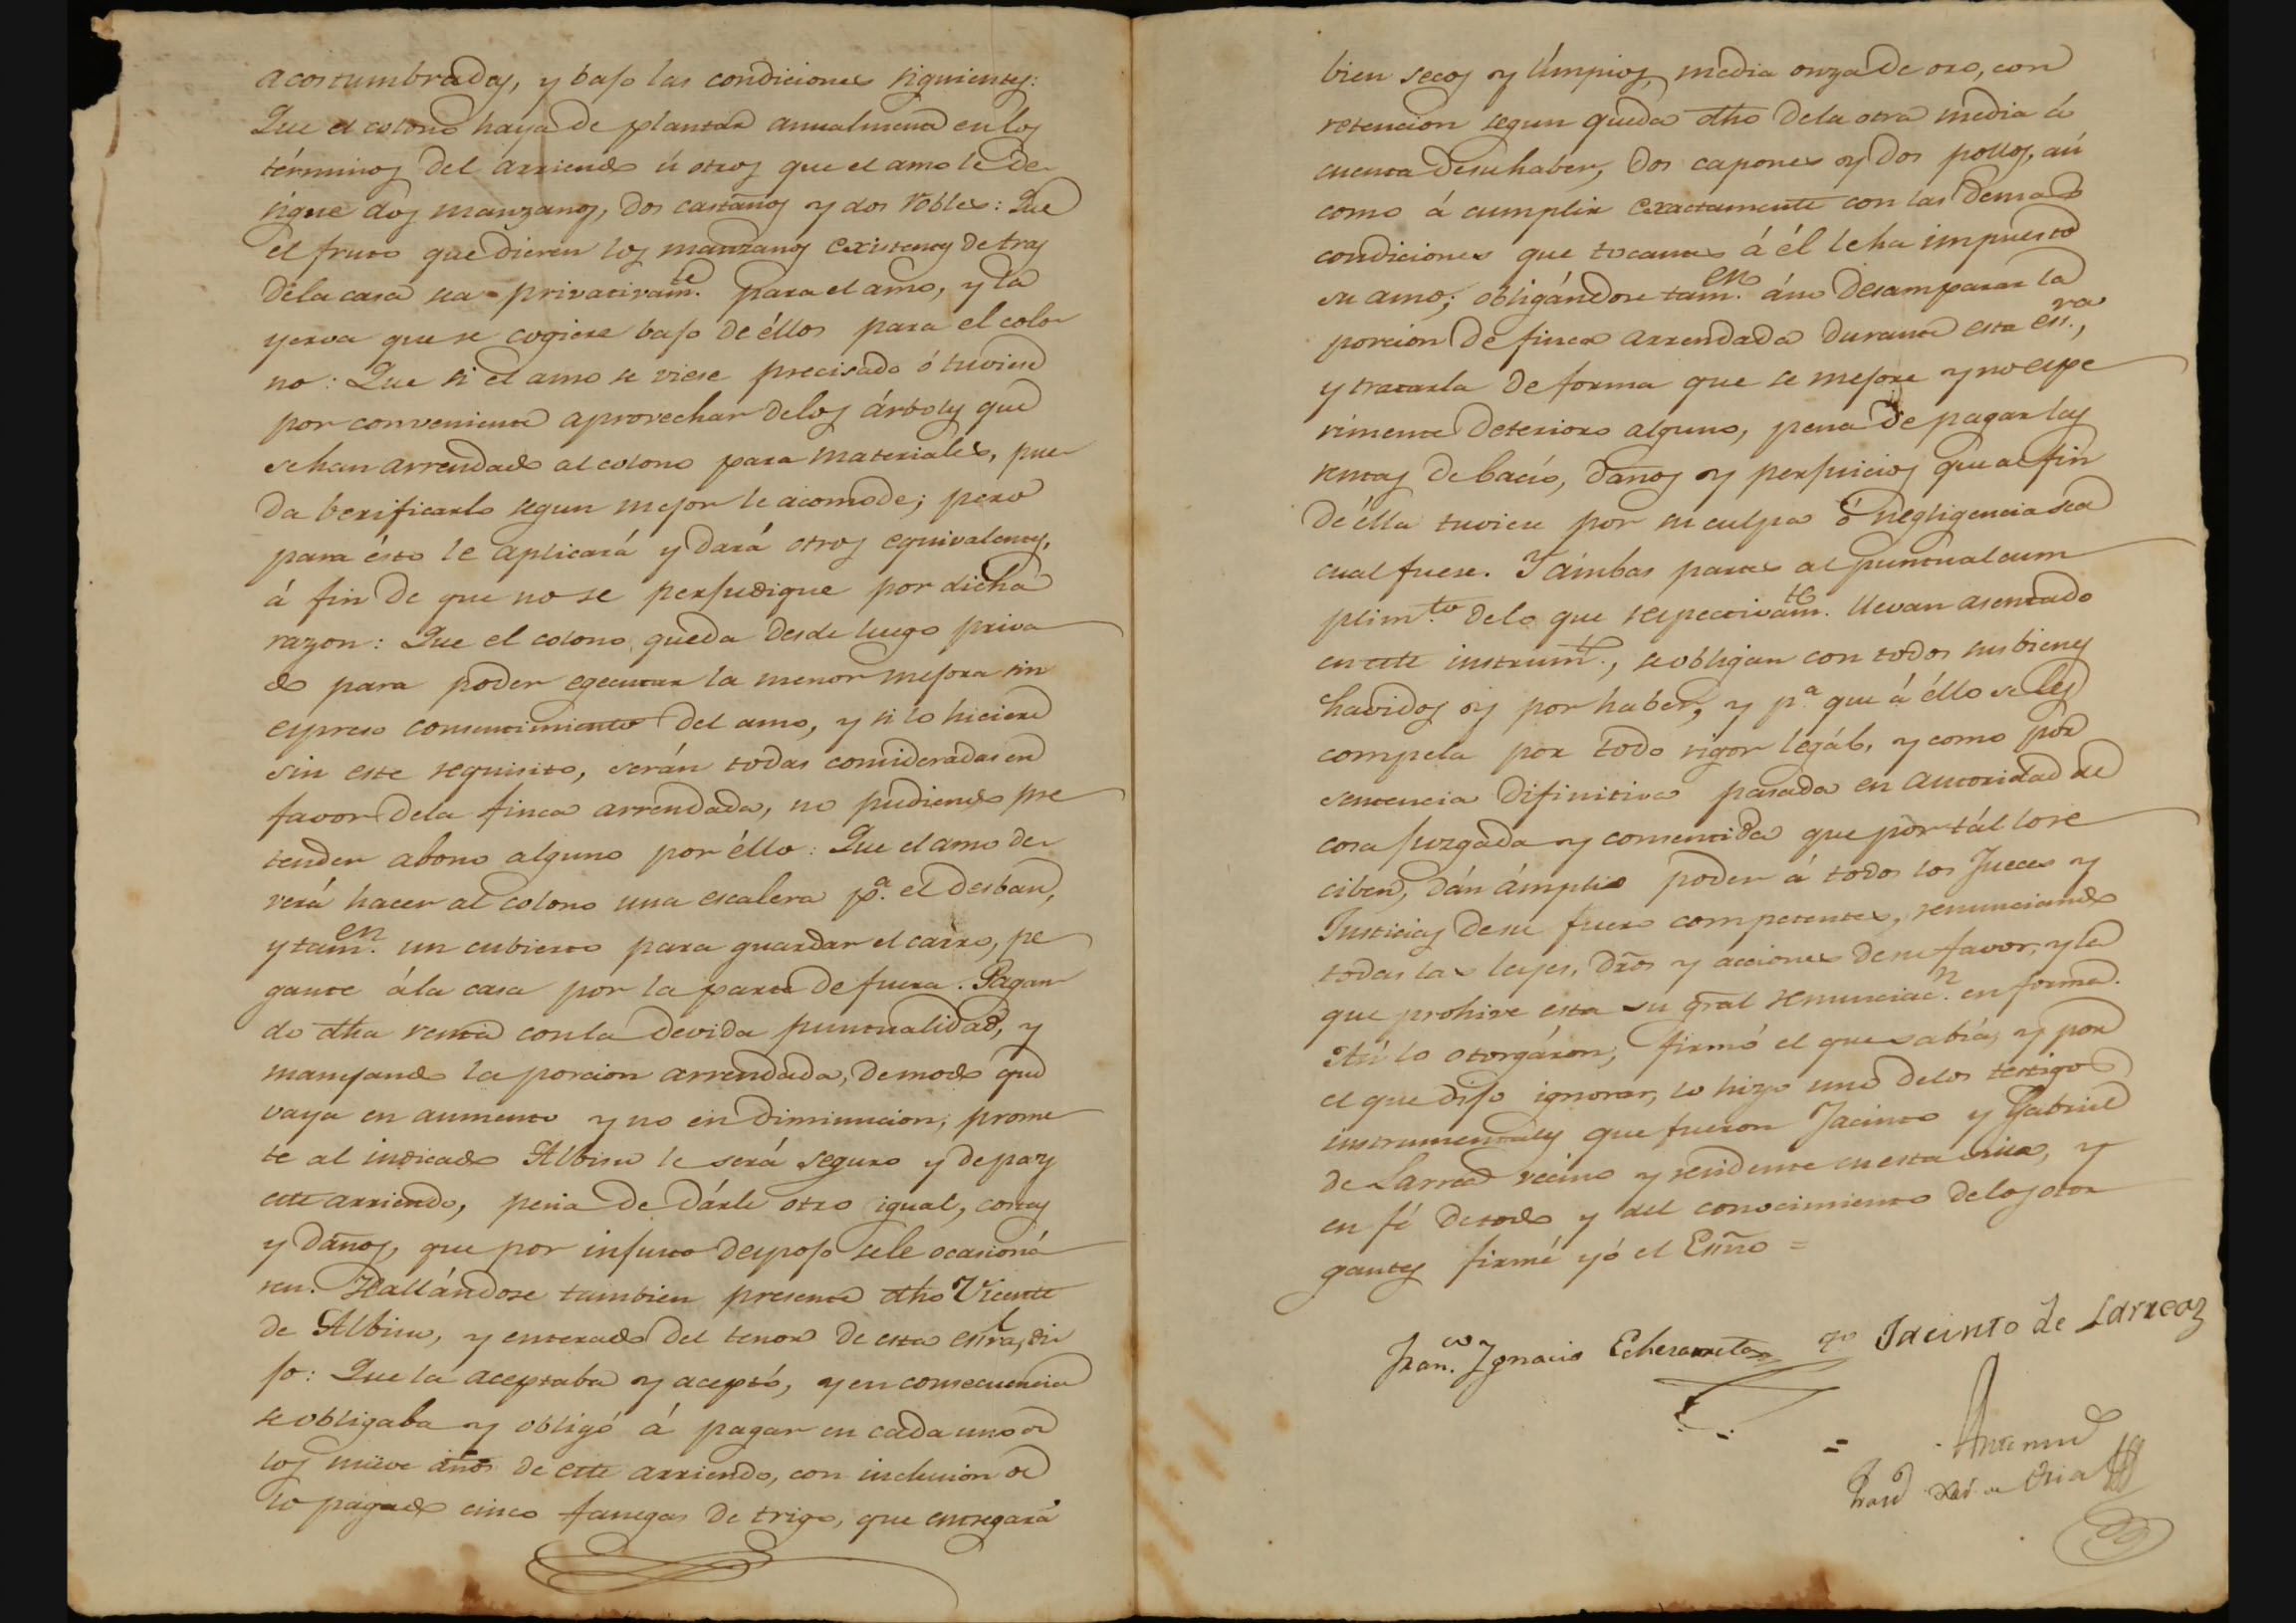 acostumbradas, y bajo las condiciones siguientes:
Que el colono haya de plantar anualmente en los
términos del arriendo ú otros que el amo le de-
signe dos manzanos, dos castaños y dos robles: Que
el fruto que dieren los manzanos existentes detras
dela casa sea privativamte. para el amo, y la
yerva que se cogiere bajo de éllos para el colo-
no: Que si el amo se viese precisado ó tuviese
por conveniente aprovechar delos árboles que
se han arrendado al colono para materiales, pue-
da berificarlo segun mejor le acomode; pero
para ésto le aplicará y dará otros equivalentes,
á fin de que no se perjudique por dicha
razon: Que el colono queda desde luego priva
do para poder egecutar la menor mejora sin
espreso consentimiento del amo, y si lo hiciere
sin este requisito, serán todas consideradas en
favor dela finca arrendada, no pudiendo pre
tender abono alguno por éllo: Que el amo de-
verá hacer al colono una escalera pª. el desban,
y tamen. un cubierto para guardar el carro, pe
gante ála casa por la parte de fuera. Pagan-
do dha renta conla devida puntualidad, y
manejando la porcion arrendada, demodo que
vaya en aumento y no en diminucion; prome
te al indicado Albisu le será seguro y de paz
este arriendo, pena de dárle otro igual, costas
y daños, que por injusto despojo sele ocasioná
ren. Hallándose tambien presente dho Vicente
de Albisu, y enterado del tenor de esta essra, di-
jo: Que la aceptaba y aceptó, y en consecuencia
se obligaba y obligó á pagar en cada uno de
los nueve años de este arriendo, con inclusion de
lo pagado cinco fanegas de trigo, que entregará
bien secos y límpios, media onza de oro, con
retencion segun queda dho dela otra media á
cuenta desu haber, dos capones y dos pollos, aú
como á cumplir exactamente con las demas
condiciones que tocantes á él le ha impuesto
su amo; obligándose tamen. áno desamparar la
porcion de finca arrendada durante esta essra.,
y tratarla de forma que se mejore y no espe
rimente deterioro alguno, pena de pagar las
rentas de bacío, daños y perjuicios que al fin
de élla tuviere por su culpa ó negligencia sea
cual fuese. Y ámbas partes al puntual cum
plimto. delo que respectivamte. llevan asentado
en este instrumto., se obligan con todos sus bienes
havidos y por haber, y pª. que á éllo se les
compela por todo rigor legál, y como por
sentencia difinitiva pasada en autoridad de
cosa juzgada y consentida que por tál lo re
ciben, dán ámplio poder á todos los Jueces y
Justicias desu fuero competentes, renunciando
todas las leyes, dros y acciones desu favor, y la
que prohive esta su gral renunciacn. en forma.
Así lo otorgáron, firmó el que sabía, y por
el que dijo ignorar, lo hizo uno delos testigos
instrumentales que fueron Jacinto y Gabriel
de Larrea vecino y residente en esta villa, y
en fé detodo y del conocimiento delos otor
gantes firmé yó el Essno =
Franco. Ignacio Echeverreta Jacinto de Larreaz
Antemi